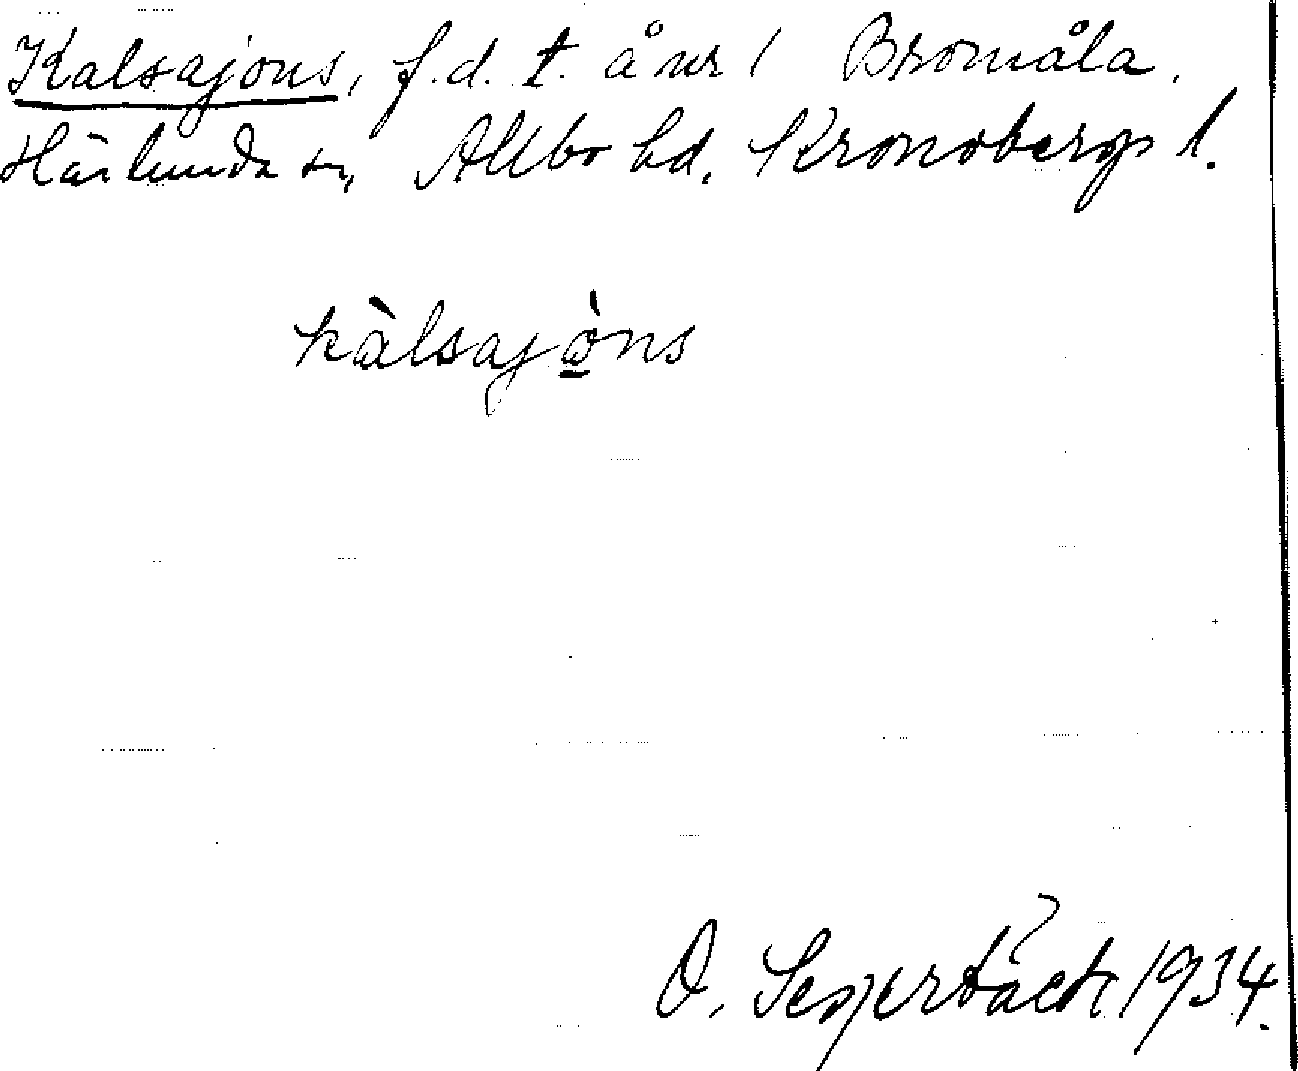 Kalsajons, f.d. t. å nr 1 Bromåla,
Härlunda sn, Allbo hd, Kronobergs l.
kàlsajo̱̊̀ns
O. Segerbäck 1934.